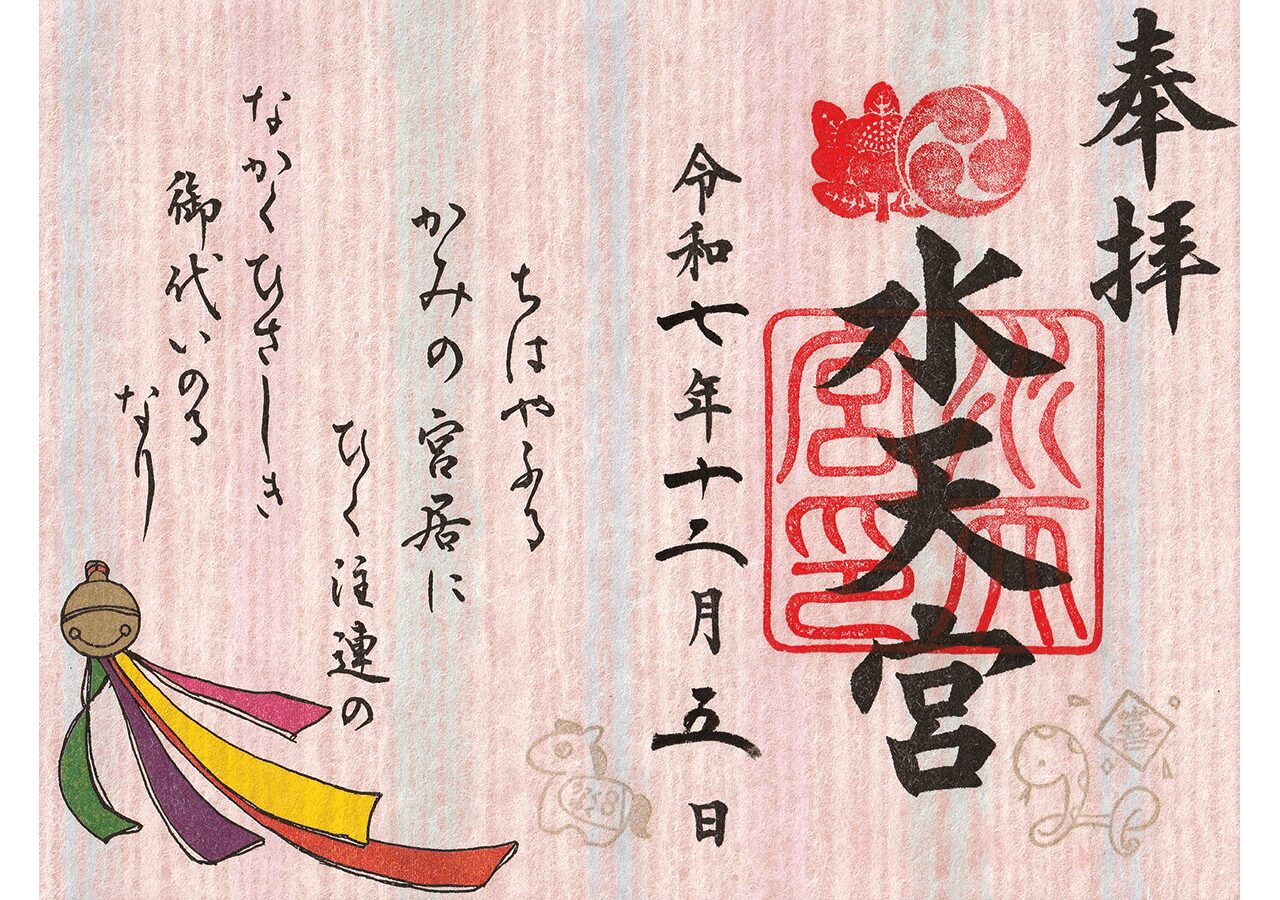 奉拝
水天宮
水天宮印
令和七年十二月五日
ちはやふる
かみの宮居に
ひく注連の
なかくひさしき
御代いのる
なり